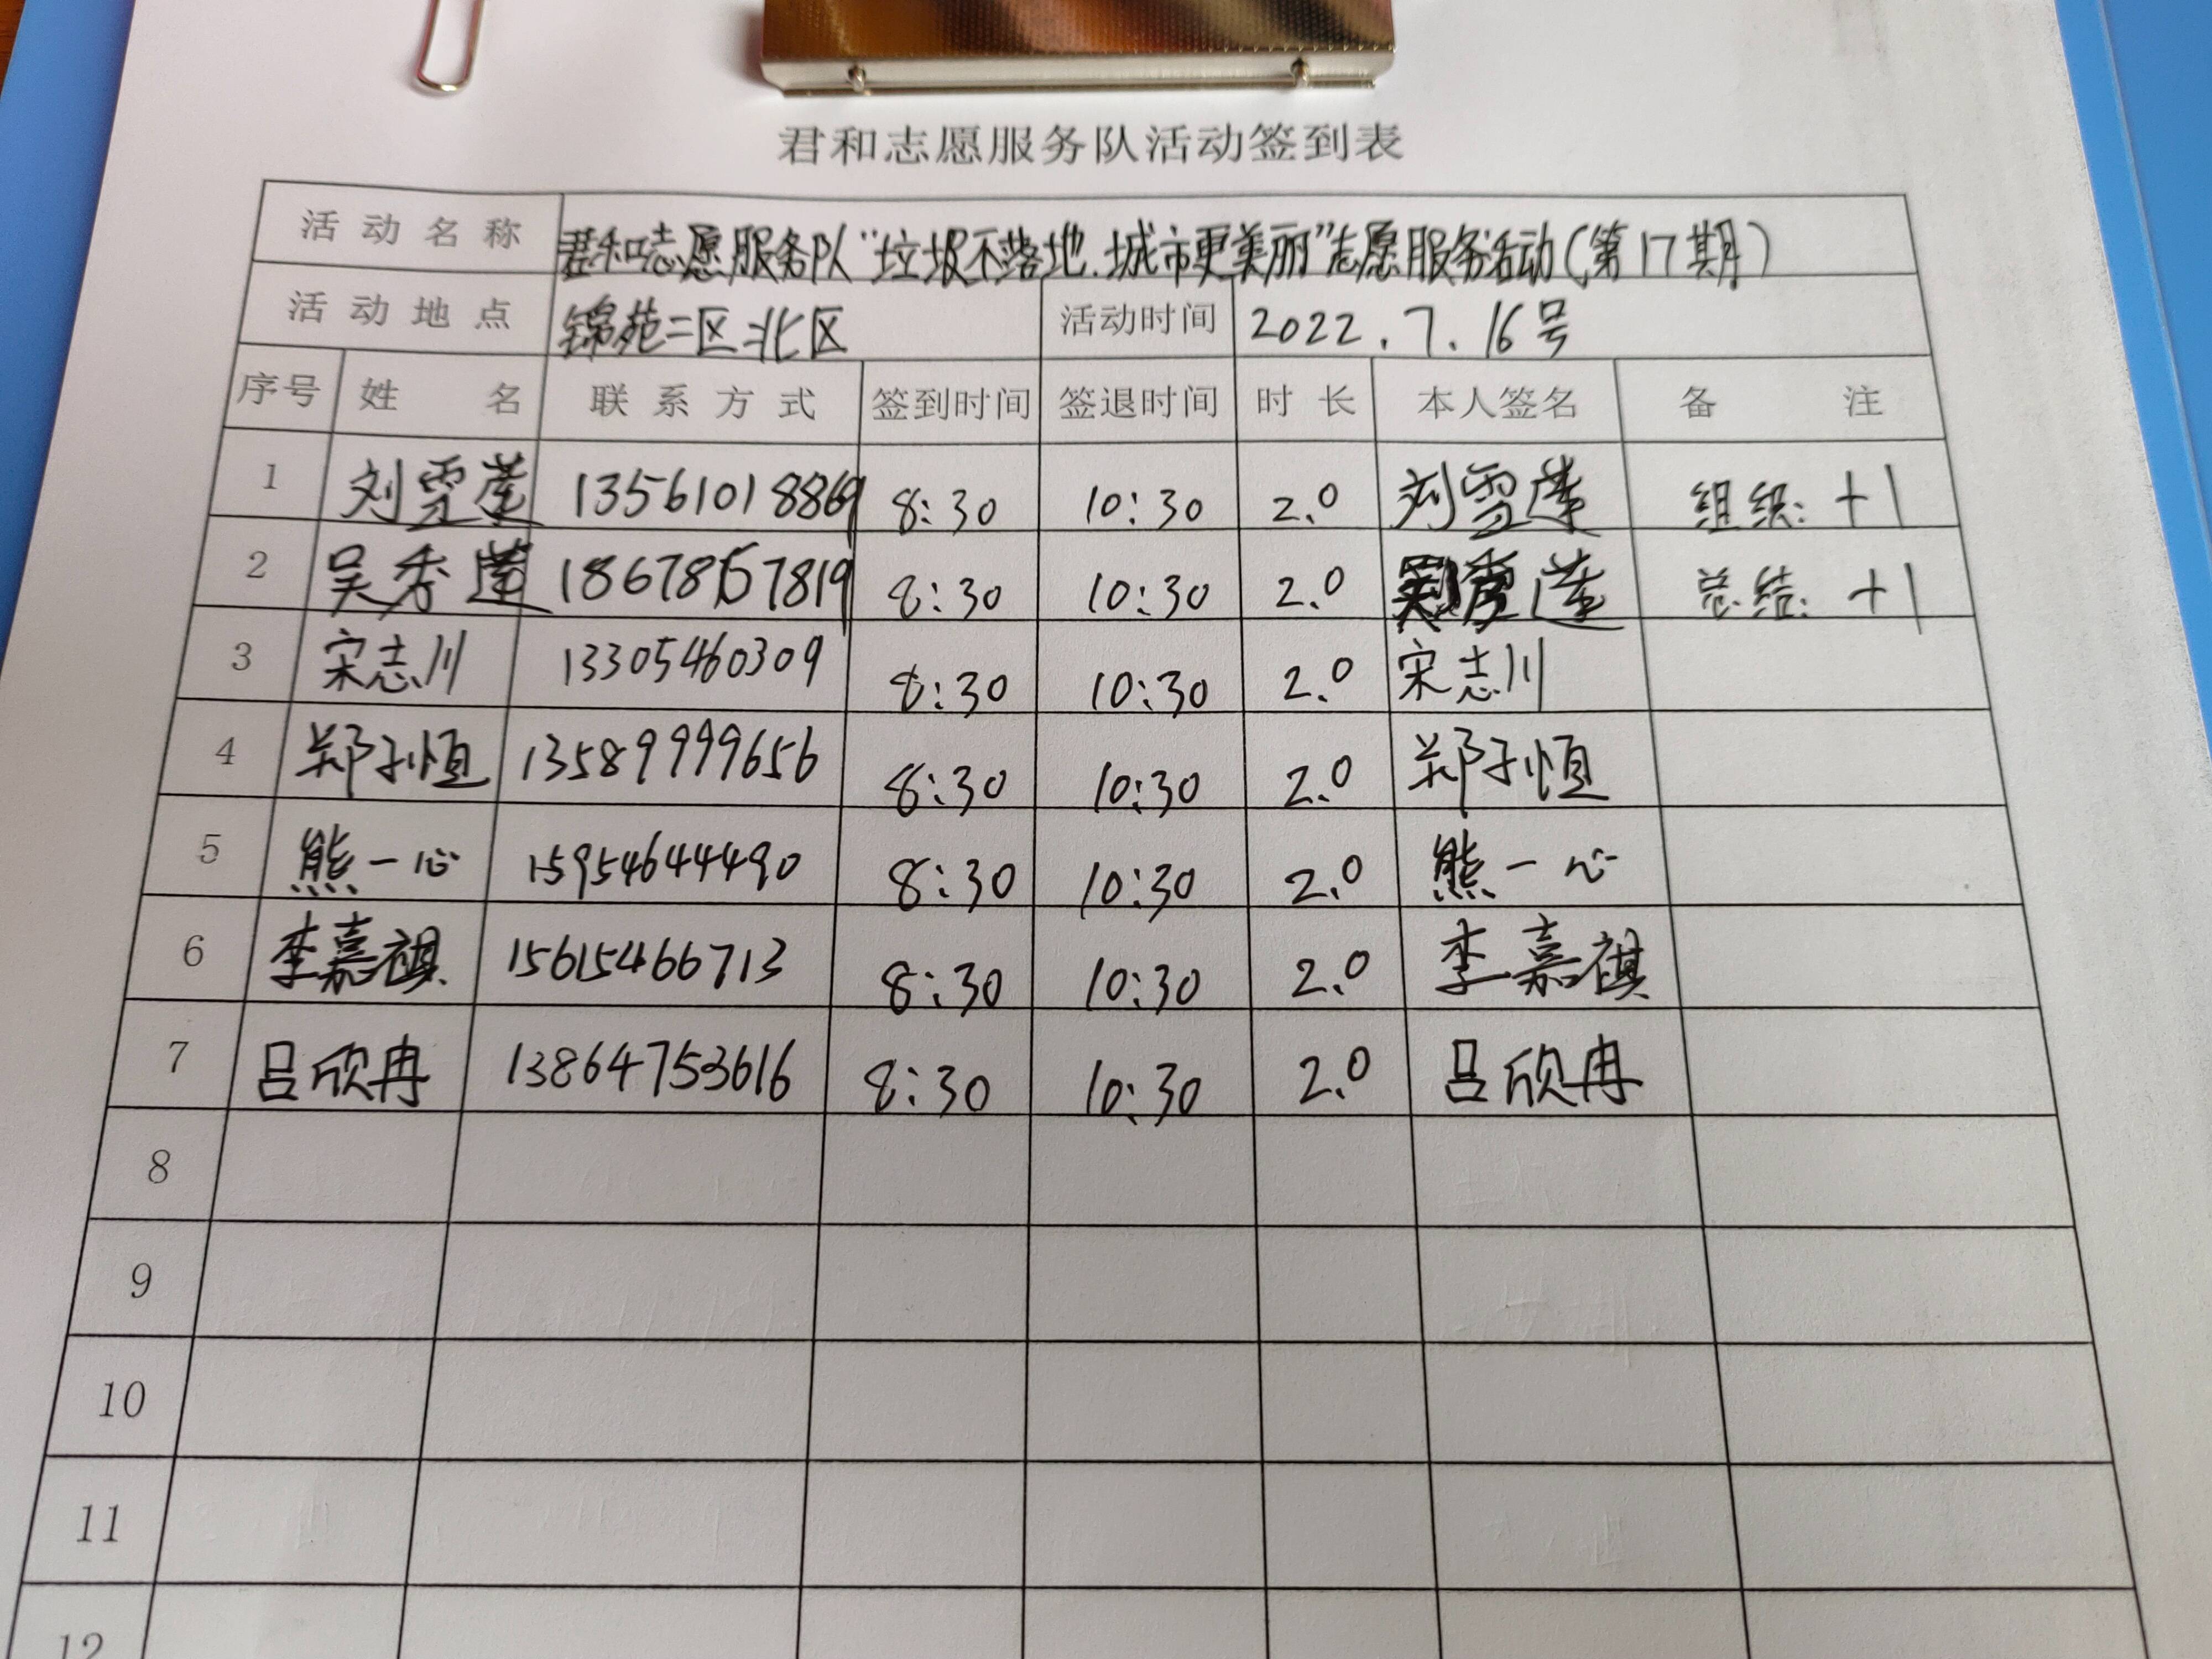 君和志愿服务队活动签到表
活动名称 君和志愿服务队“垃圾不落地.城市更美丽”志愿服务活动(第17期)
活动地点 锦苑二区北区 活动时间 2022.7.16号
序号 姓名 联系方式 签到时间 签退时间 时长 本人签名 备注
1 刘雪莲 13561018869 8:30 10:30 2.0 刘雪莲 组织:+1
2 吴秀莲 18678157819 8:30 10:30 2.0 总结:+1
3 宋志川 13305460309 8:30 10:30 2.0 宋志川
4 郑孙恒 13589999656 8:30 10:30 2.0 郑子恒
5 熊一心 15954644490 8:30 10:30 2.0 熊一心
6 李嘉祺 15615466713 8:30 10:30 2.0 李嘉祺
7 吕欣冉 13864753616 8:30 10:30 2.0 吕欣冉
8
9
10
11
12